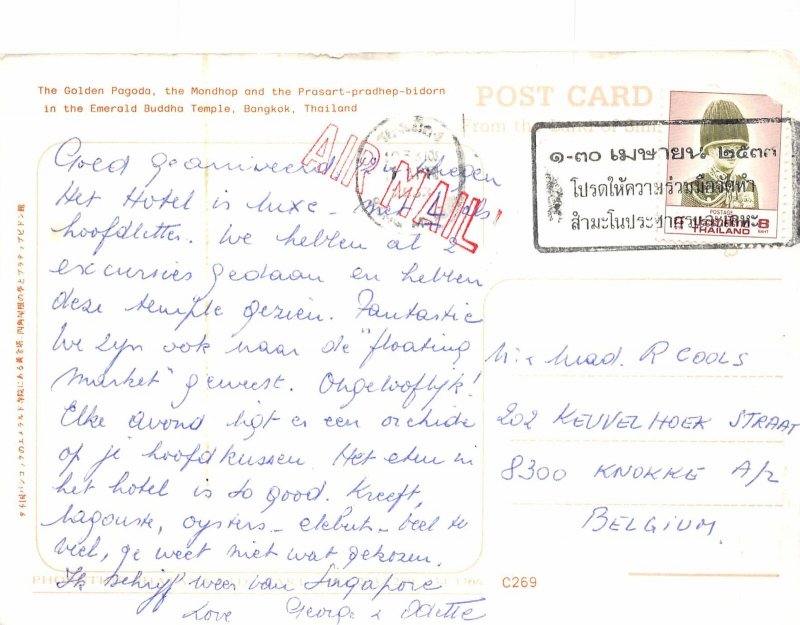 The Golden Pagoda, the Mondhop and the Prasart-pradhep-bidorn
in the Emerald Buddha Temple, Bangkok, Thailand
POST CARD
AIR MAIL
๑-๓๐ เมษายน ๒๕๓๓
โปรดให้ความร่วมมือจัดทำ
สำมะโนประชากรและเคหะ
POSTAGE
THAILAND 8
Goed geariveerd
Het Hotel is luxe - met 4 als
hoofdletter. We hebben al 2
excursies gedaan en hebben
deze temple gezien. Fantastic
We zyn ook naar de "floating
market" geweest. Ongelooflyk!
Elke avond ligt er een orchidee
op je hoofdkussen. Het eten in
het hotel is zo good. Kreeft,
lagouste, oysters - veel te
veel, ge weet niet wat gekozen.
Ik schryf weer van Singapore
Love George & Odette
Mr & Mad. R COOLS
202 KEUVELHOEK STRAAT
8300 KNOKKE A/Z
BELGIUM.
C269